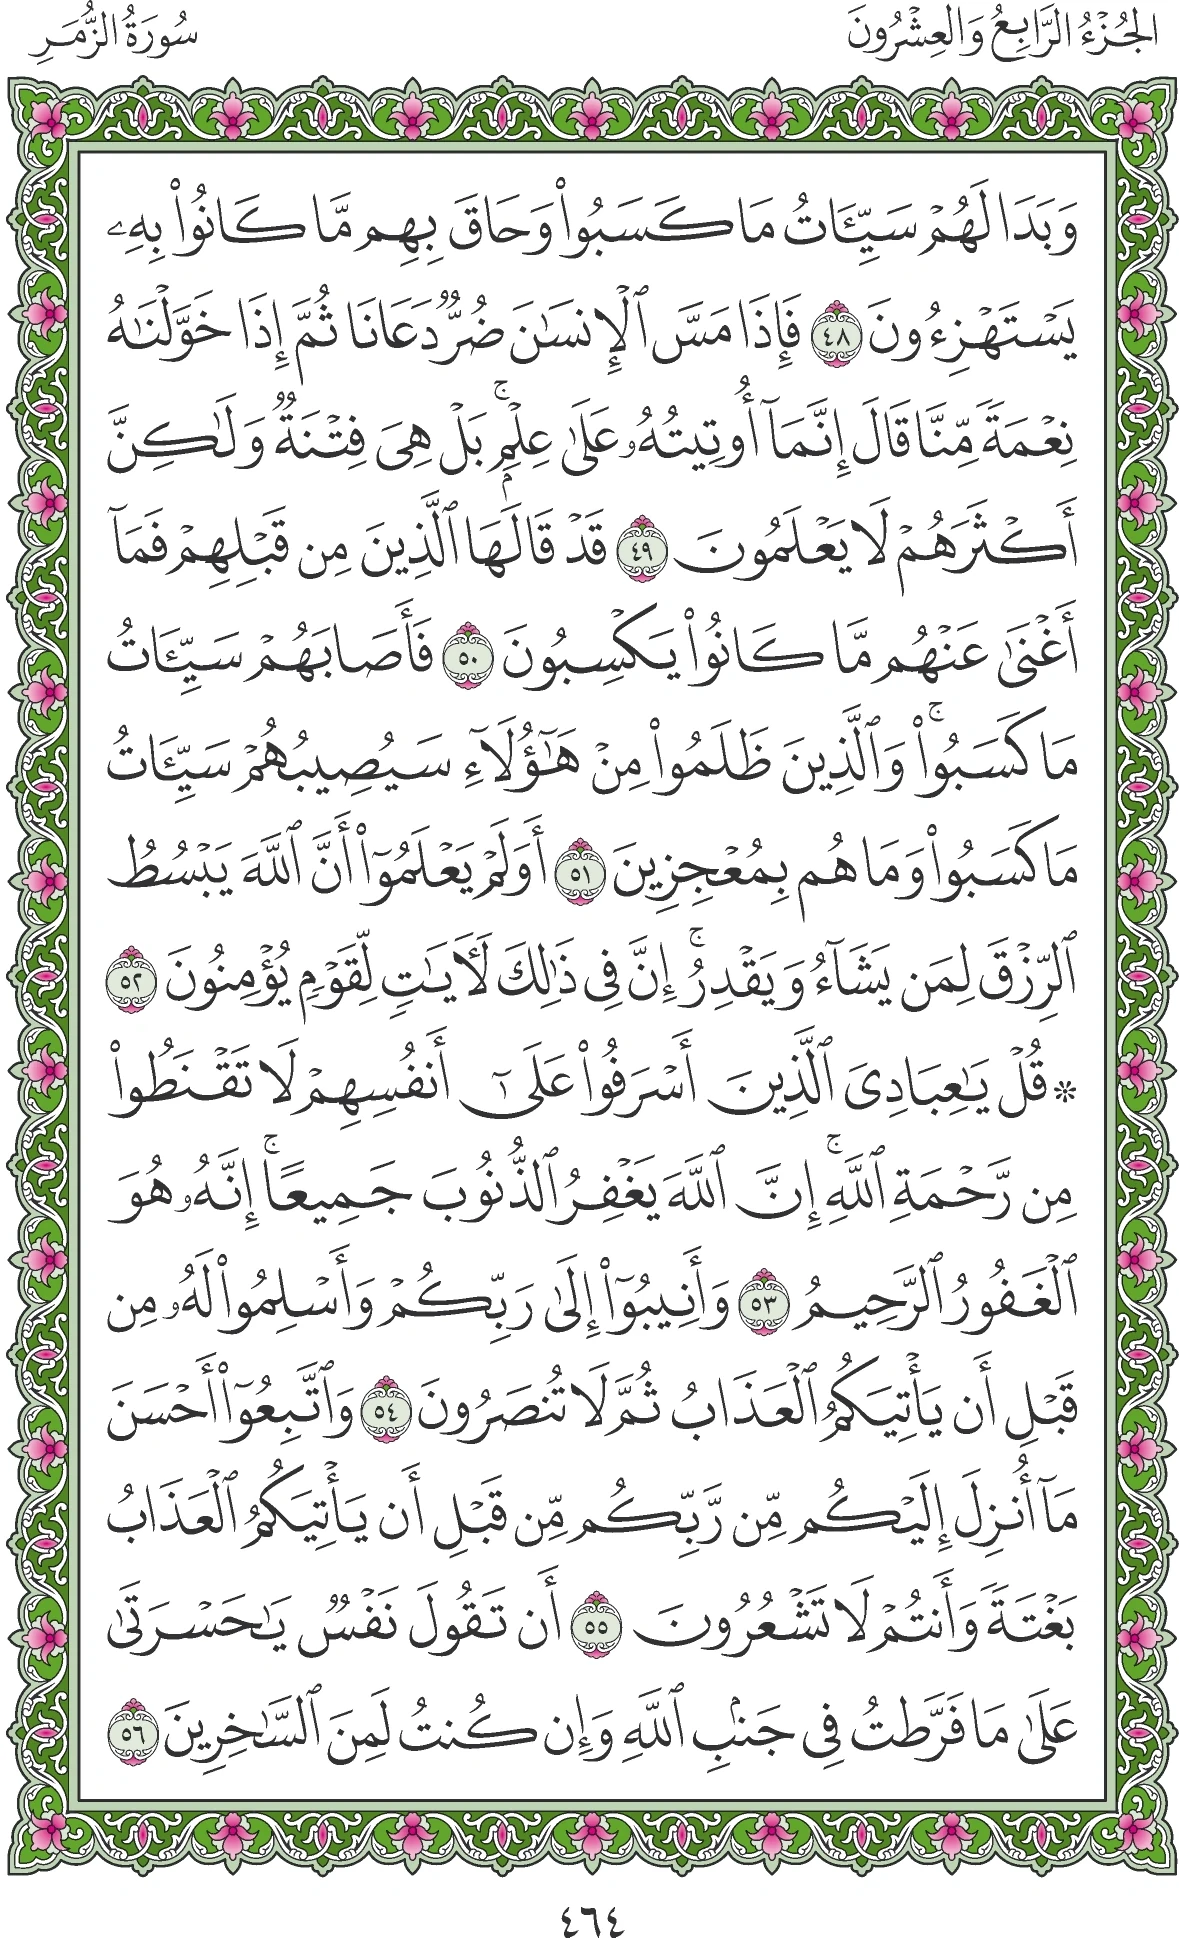 الجُزْءُ الرَّابِعُ وَالعِشْرُونَ
سُورَةُ الزُّمَرِ
وَبَدَا لَهُمْ سَيِّـَٔاتُ مَا كَسَبُوا۟ وَحَاقَ بِهِم مَّا كَانُوا۟ بِهِۦ
يَسْتَهْزِءُونَ ٤٨ فَإِذَا مَسَّ ٱلْإِنسَٰنَ ضُرٌّ دَعَانَا ثُمَّ إِذَا خَوَّلْنَٰهُ
نِعْمَةً مِّنَّا قَالَ إِنَّمَآ أُوتِيتُهُۥ عَلَىٰ عِلْمٍۭ ۚ بَلْ هِىَ فِتْنَةٌ وَلَٰكِنَّ
أَكْثَرَهُمْ لَا يَعْلَمُونَ ٤٩ قَدْ قَالَهَا ٱلَّذِينَ مِن قَبْلِهِمْ فَمَآ
أَغْنَىٰ عَنْهُم مَّا كَانُوا۟ يَكْسِبُونَ ٥٠ فَأَصَابَهُمْ سَيِّـَٔاتُ
مَا كَسَبُوا۟ ۚ وَٱلَّذِينَ ظَلَمُوا۟ مِنْ هَٰٓؤُلَآءِ سَيُصِيبُهُمْ سَيِّـَٔاتُ
مَا كَسَبُوا۟ وَمَا هُم بِمُعْجِزِينَ ٥١ أَوَلَمْ يَعْلَمُوٓا۟ أَنَّ ٱللَّهَ يَبْسُطُ
ٱلرِّزْقَ لِمَن يَشَآءُ وَيَقْدِرُ ۚ إِنَّ فِى ذَٰلِكَ لَءَايَٰتٍ لِّقَوْمٍ يُؤْمِنُونَ ٥٢
۞ قُلْ يَٰعِبَادِىَ ٱلَّذِينَ أَسْرَفُوا۟ عَلَىٰٓ أَنفُسِهِمْ لَا تَقْنَطُوا۟
مِن رَّحْمَةِ ٱللَّهِ ۚ إِنَّ ٱللَّهَ يَغْفِرُ ٱلذُّنُوبَ جَمِيعًا ۚ إِنَّهُۥ هُوَ
ٱلْغَفُورُ ٱلرَّحِيمُ ٥٣ وَأَنِيبُوٓا۟ إِلَىٰ رَبِّكُمْ وَأَسْلِمُوا۟ لَهُۥ مِن
قَبْلِ أَن يَأْتِيَكُمُ ٱلْعَذَابُ ثُمَّ لَا تُنصَرُونَ ٥٤ وَٱتَّبِعُوٓا۟ أَحْسَنَ
مَآ أُنزِلَ إِلَيْكُم مِّن رَّبِّكُم مِّن قَبْلِ أَن يَأْتِيَكُمُ ٱلْعَذَابُ
بَغْتَةً وَأَنتُمْ لَا تَشْعُرُونَ ٥٥ أَن تَقُولَ نَفْسٌ يَٰحَسْرَتَىٰ
عَلَىٰ مَا فَرَّطتُ فِى جَنۢبِ ٱللَّهِ وَإِن كُنتُ لَمِنَ ٱلسَّٰخِرِينَ ٥٦
٤٦٤